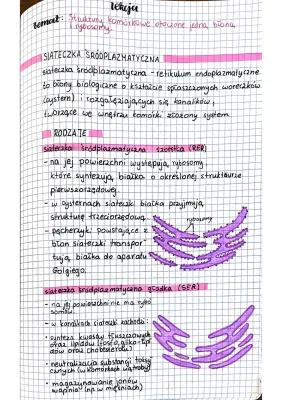 Lekcja
Temat: Struktury komórkowe otoczone jedną błoną
i rybosomy.
SIATECZKA ŚRÓDPLAZMATYCZNA
siateczka śródplazmatyczna - retikulum endoplazmatyczne
to błony biologiczne o kształcie spłaszczonych woreczków
(cystern) i rozgałęziających się kanalików,
tworzące we wnętrzu komórki złożony system
RODZAJE
siateczka śródplazmatyczna szorstka (RER)
- na jej powierzchni występują rybosomy
które syntezują białka o określonej strukturze
pierwszorzędowej.
- w cysternach siateczki białka przyjmują
strukturę trzeciorzędową
rybosomy
- pęcherzyki powstające z
błon siateczki transpor
tują białka do aparatu
Golgiego.
siateczka śródplazmatyczna gładka (SER)
- na jej powierzchni nie ma rybo
somów.
- w kanalikach siateczki zachodzi:
synteza kwasów tłuszczowych
oraz lipidów (fosfo, gliko-lipi
dów oraz cholesterolu)
- neutralizacja substancji toksy
cznych (w komórkach wątroby)
- magazynowanie jonów
wapnia (np w mięśniach)